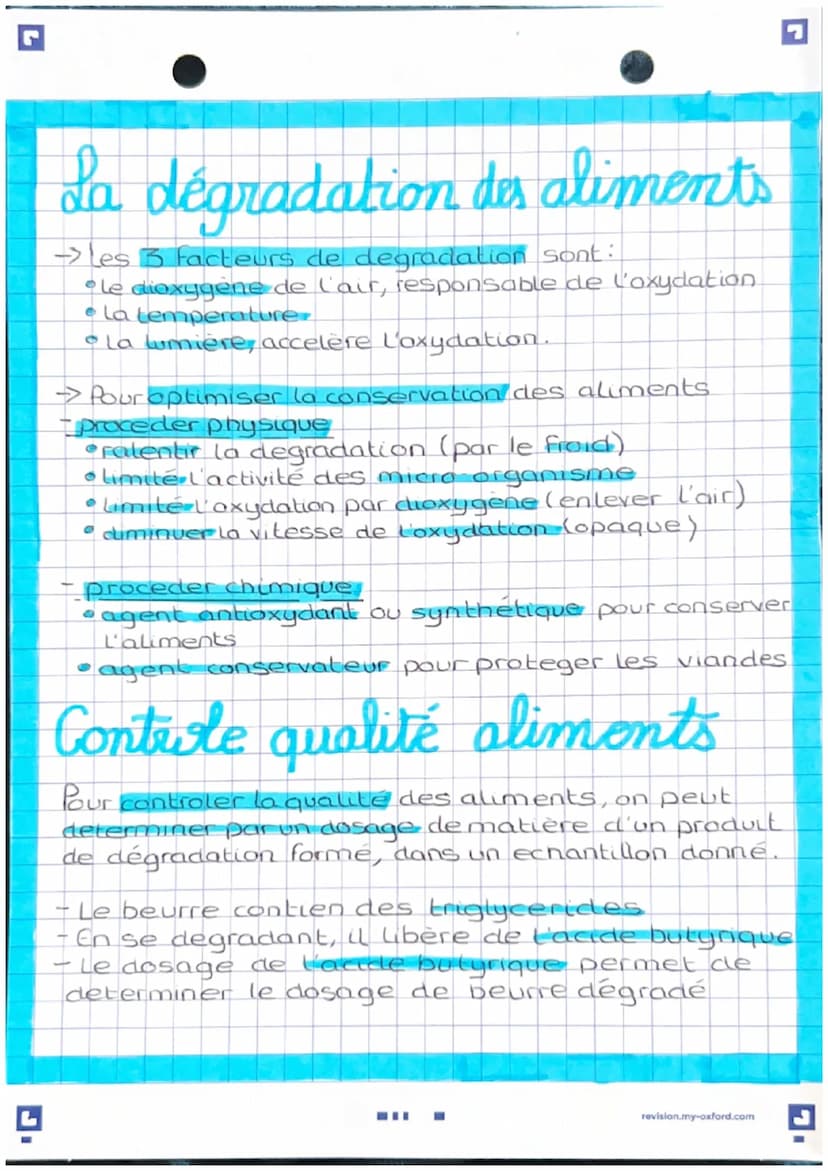 La dégradation des aliments
→ Les 3 facteurs de degradation sont :
• Le dioxygène de l'air, responsable de l'oxydation
• La temperature
• La lumière, accelère l'oxydation.
→ Pour optimiser la conservation des aliments
- proceder physique
• ralentir la degradation (par le froid)
• limité l'activité des micro-organisme
• limité l'oxydation par dioxygène (enlever l'air)
• diminuer la vitesse de l'oxydation (opaque)
- proceder chimique
• agent antioxydant ou synthétique pour conserver
l'aliments
• agent conservateur pour proteger les viandes
Controle qualité aliments
Pour controler la qualité des aliments, on peut
determiner par un dosage de matière d'un produit
de dégradation formé, dans un echantillon donné.
- Le beurre contien des triglycerides
- En se degradant, il libère de l'acide butyrique
- Le dosage de l'acide butyrique permet de
determiner le dosage de beurre dégradé
revision.my-oxford.com